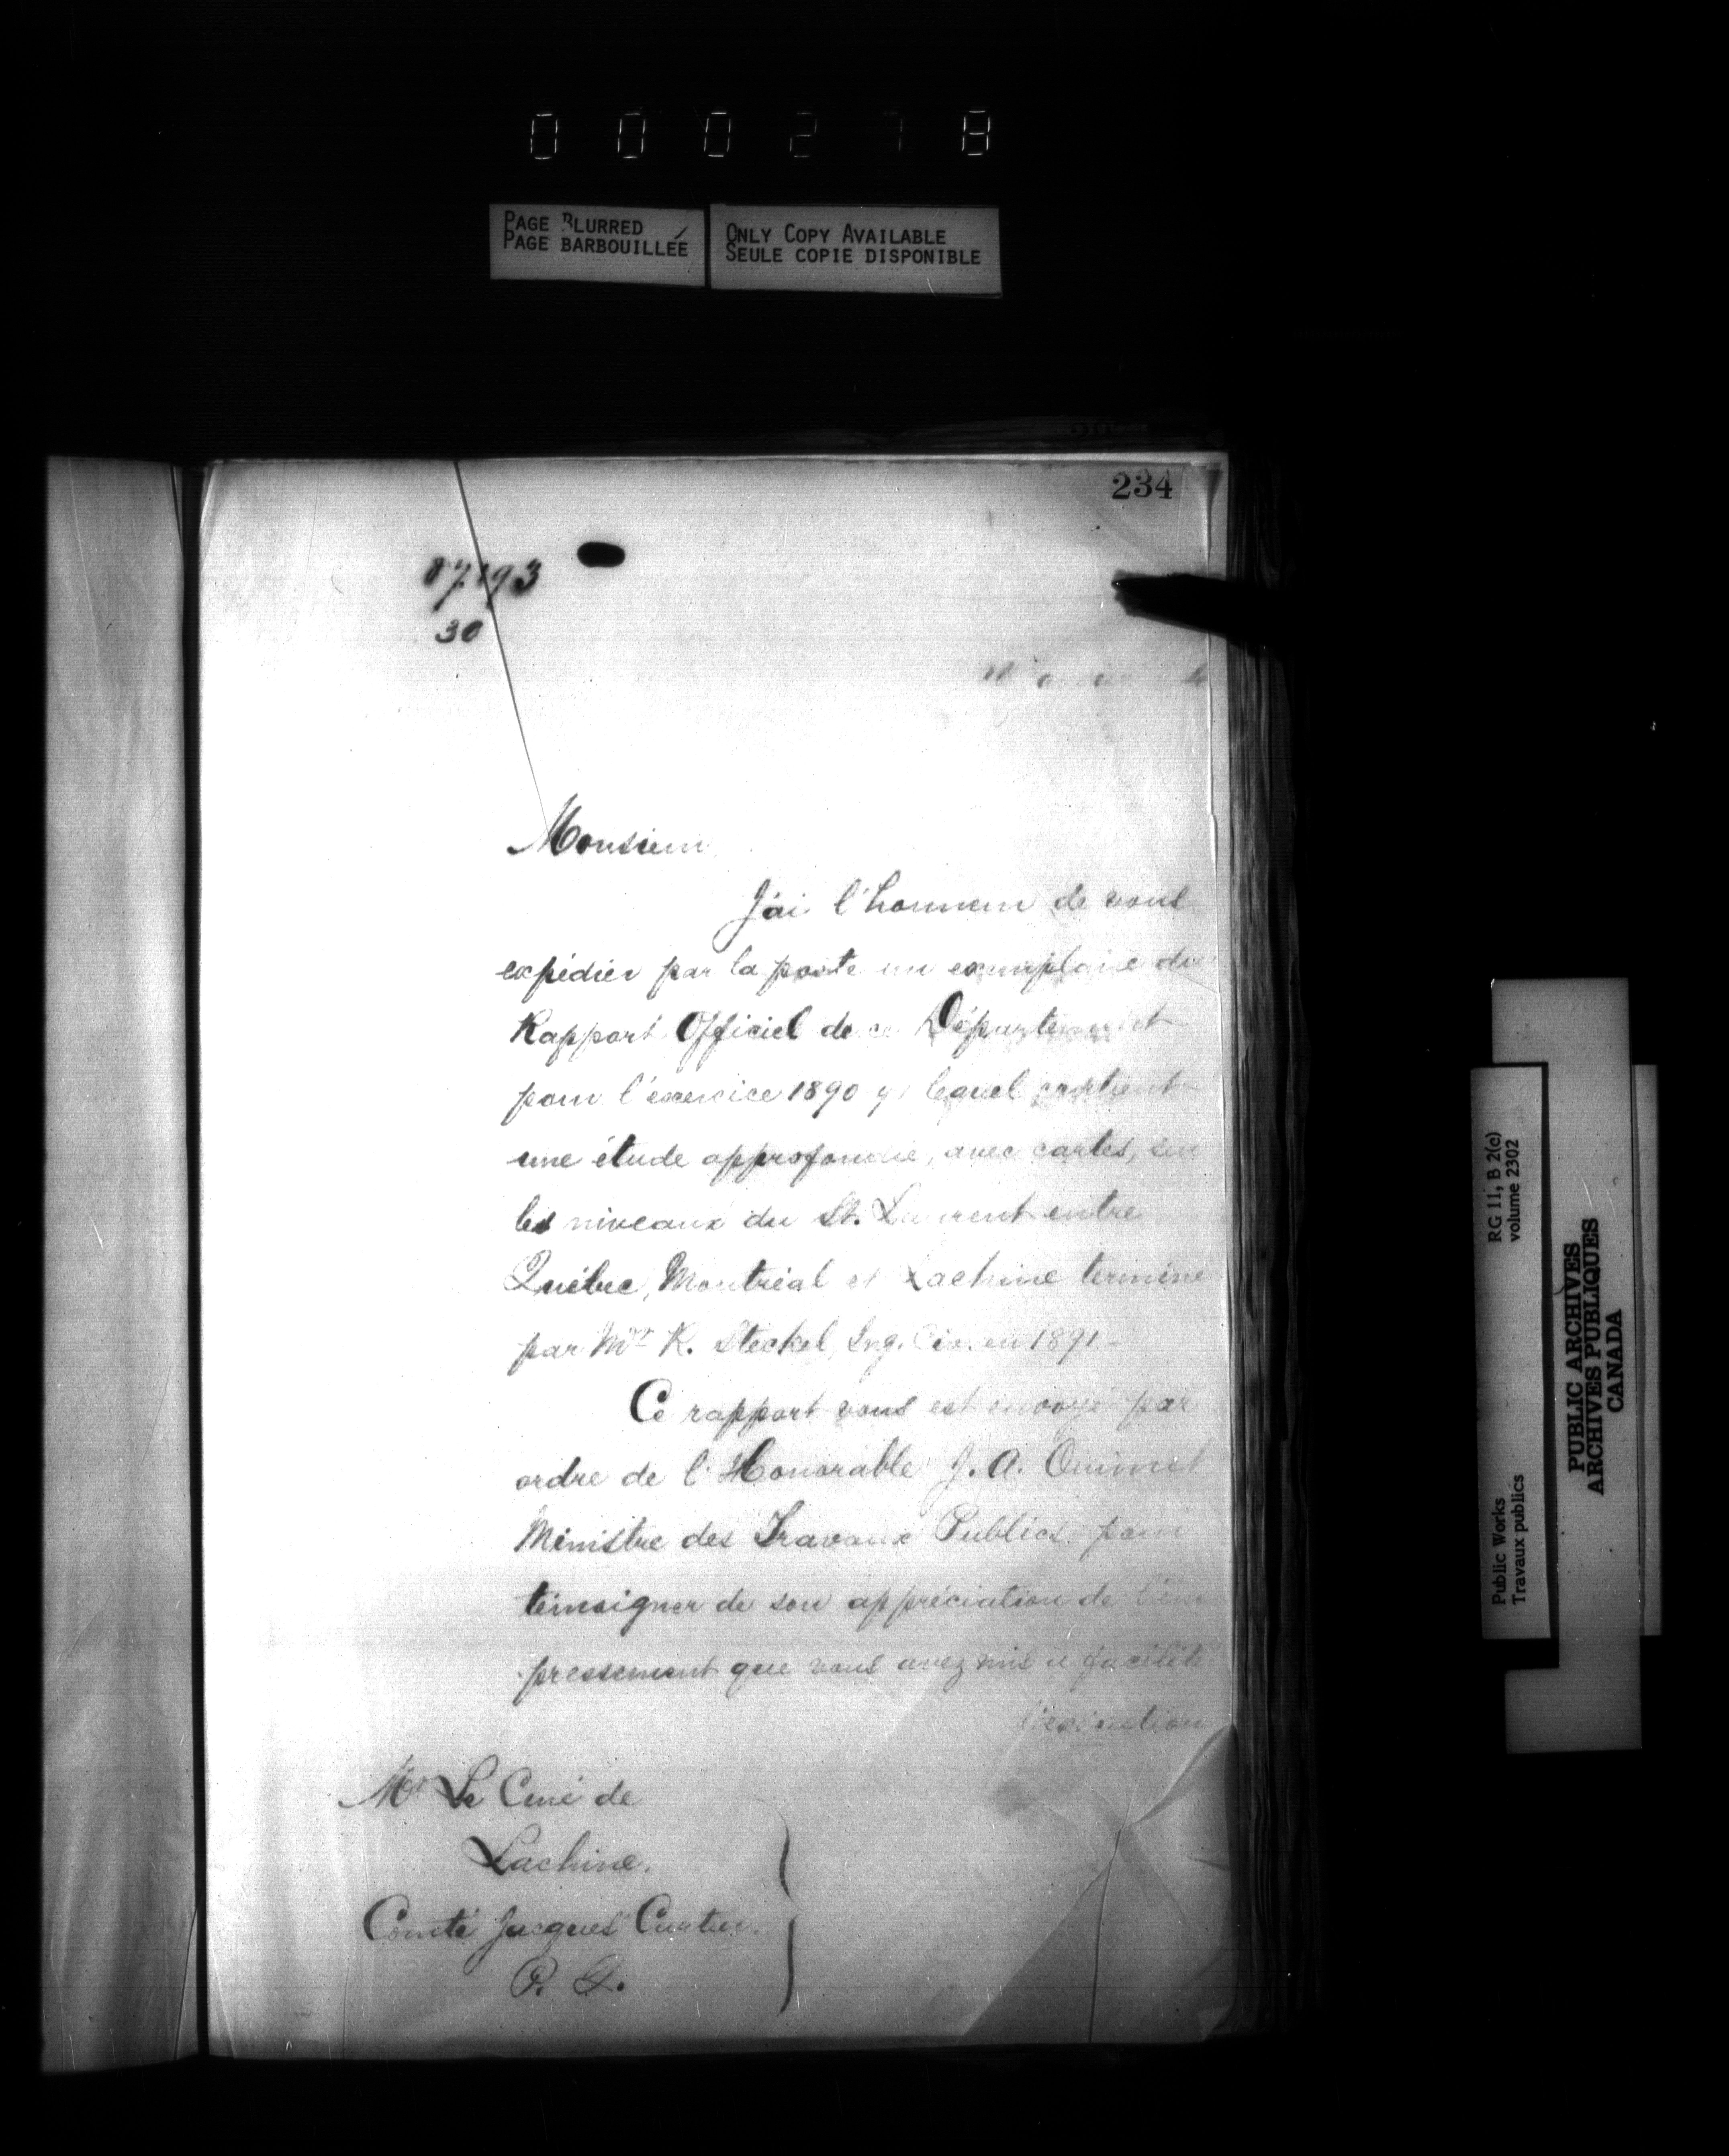 000278
PAGE BLURRED
PAGE BARBOUILLÉE
ONLY COPY AVAILABLE
SEULE COPIE DISPONIBLE
234
30
Monsieur
J'ai l'honneur de vous
expédier par la poste un exemplaire du
Rapport Officiel de ce Département
pour l'exercice 1890 lequel contient
une étude approfondie, avec cartes, sur
les niveaux du St. Laurent entre
Québec, Montréal et Lachine terminé
par Mr R. Steckel, Ing. Civ. en 1891.
Ce rapport vous est envoyé par
ordre de l'Honorable J. A. Ouimet
Ministre des Travaux Publics pour
témoigner de son appréciation de l'em
pressement que vous avez mis à faciliter
l'exécution
Mr Le Curé de
Lachine.
Comté Jacques Cartier.
P. Q.
RG 11, B 2(c)
volume 2302
Public Works
Travaux publics
PUBLIC ARCHIVES
ARCHIVES PUBLIQUES
CANADA